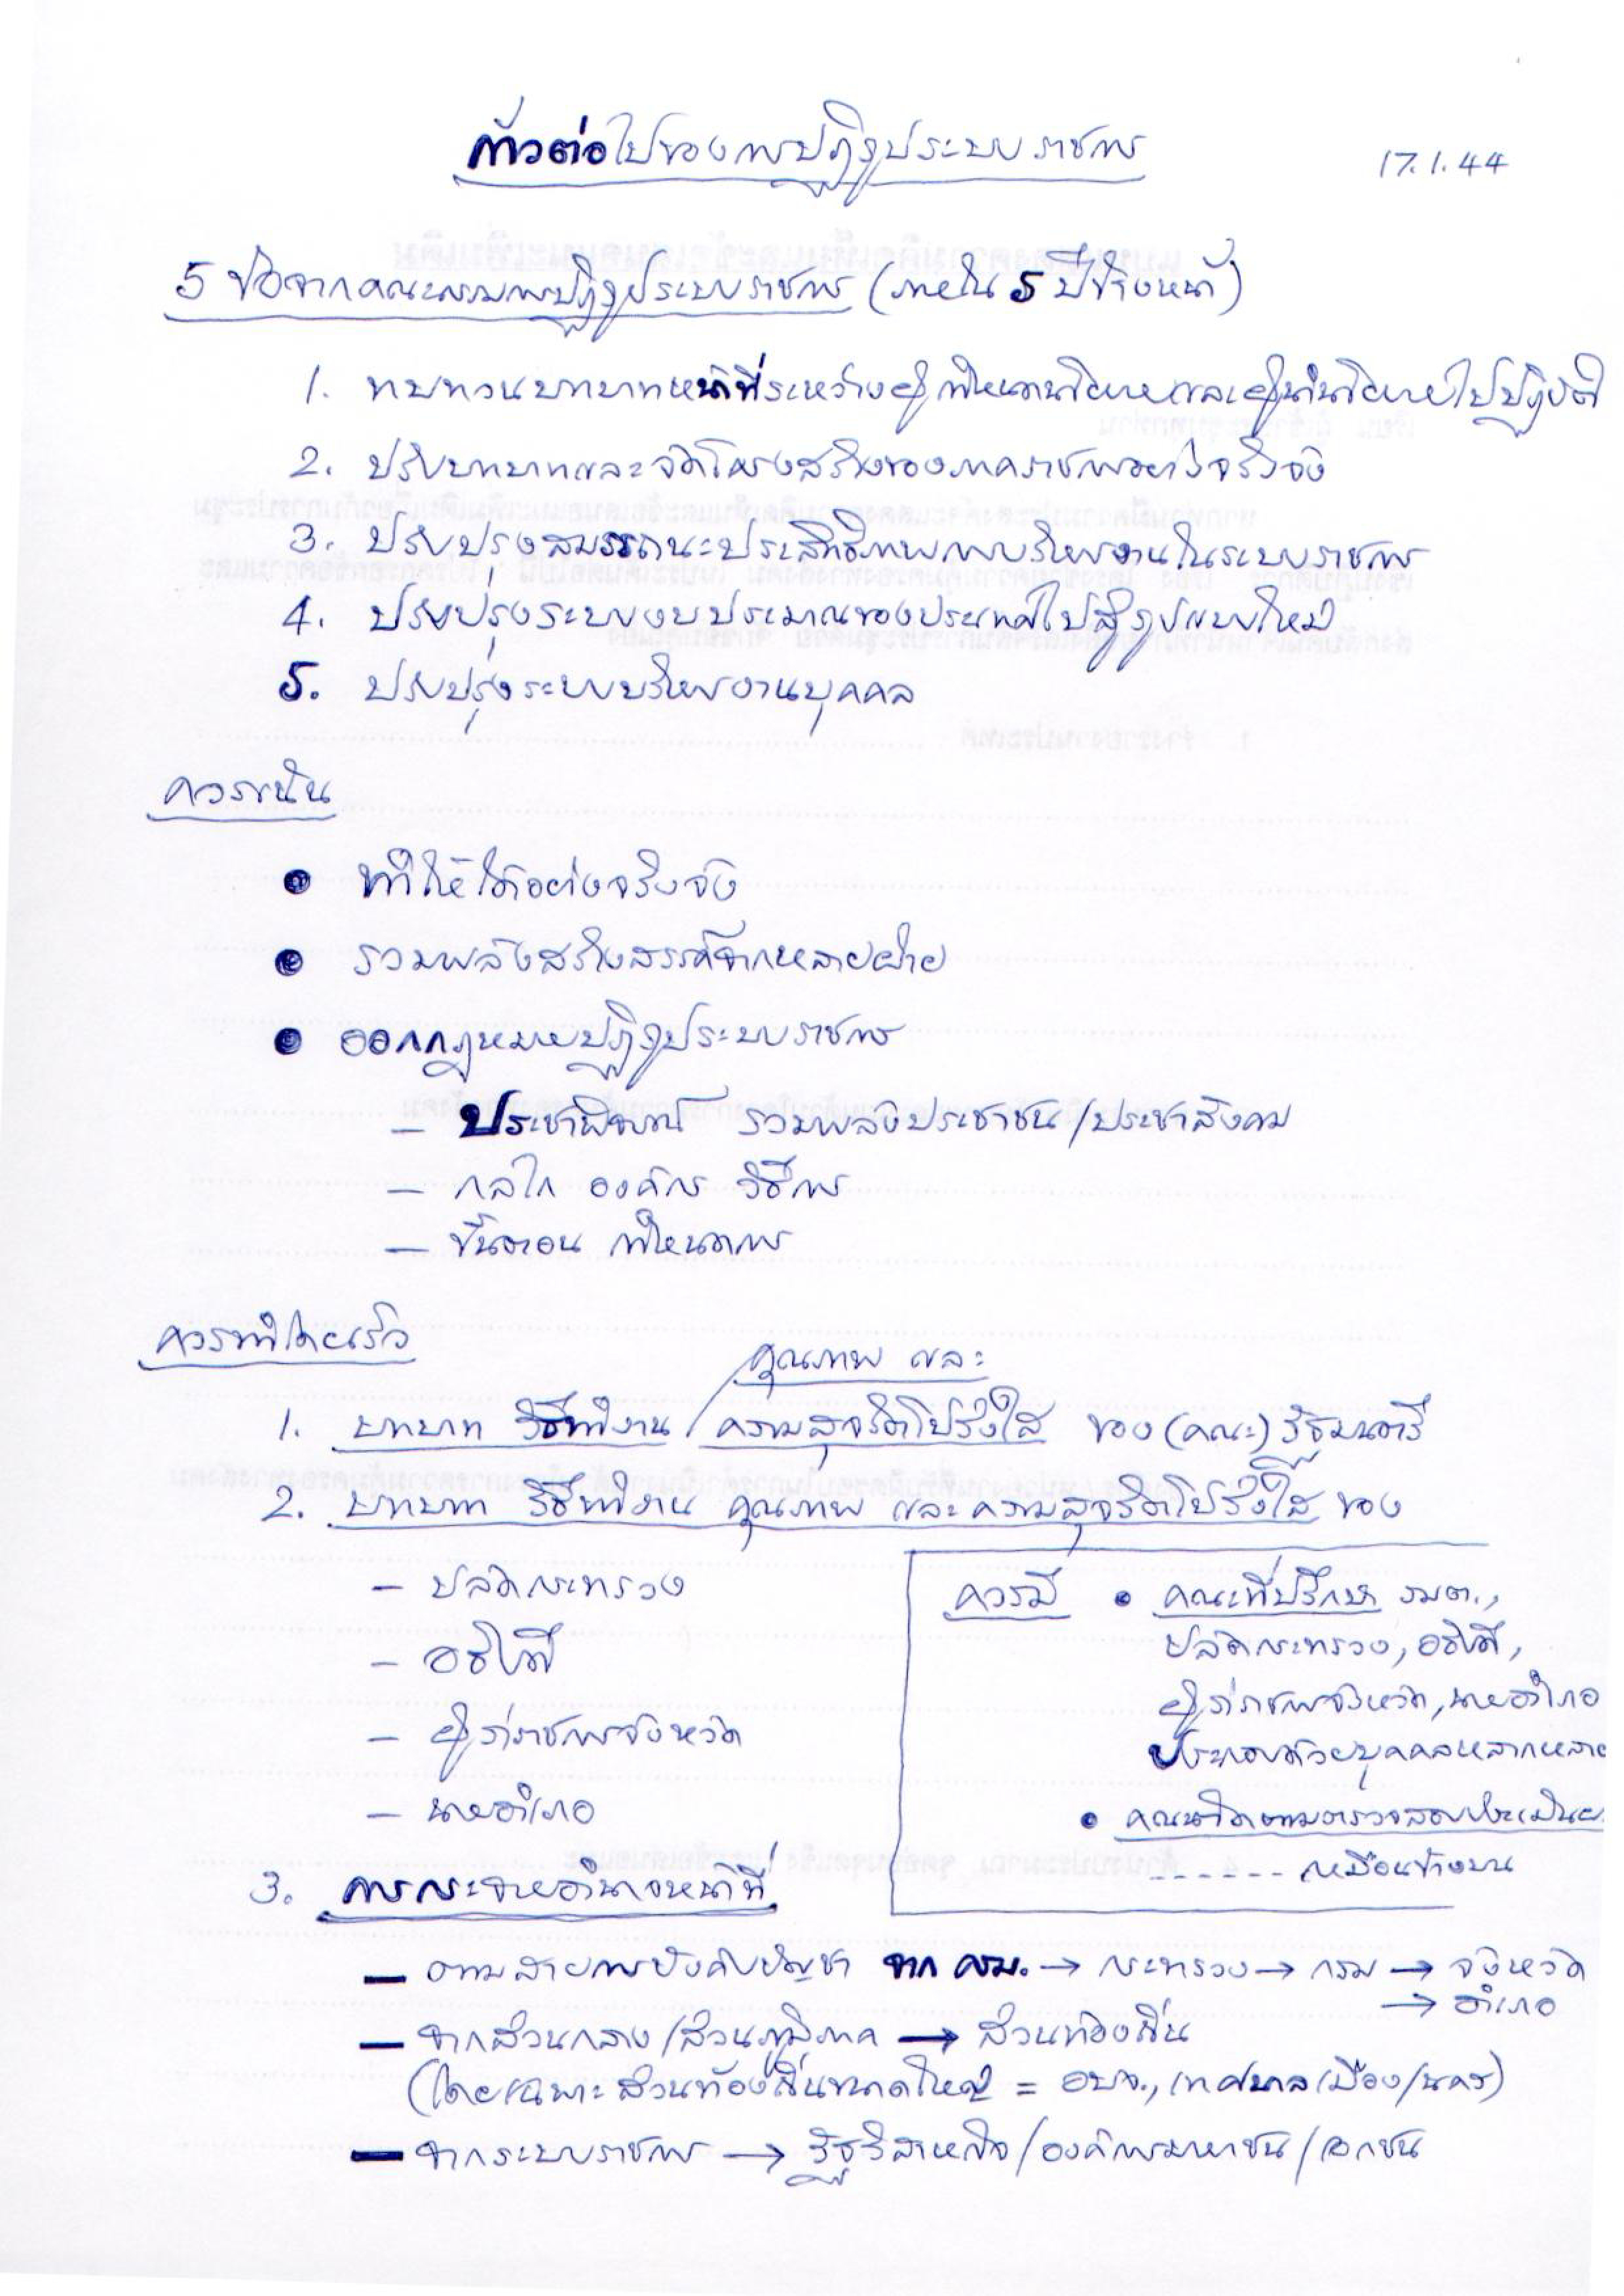 ก้าวต่อไปของการปฏิรูประบบราชการ
17.1.44
5 ข้อจากคณะกรรมการปฏิรูประบบราชการ (ภายใน 5 ปีข้างหน้า)
1. ทบทวนบทบาทหน้าที่ระหว่างผู้กำหนดนโยบายและผู้นำนโยบายไปปฏิบัติ
2. ปรับบทบาทและจัดโครงสร้างของภาคราชการอย่างจริงจัง
3. ปรับปรุงสมรรถนะประสิทธิภาพการบริหารงานในระบบราชการ
4. ปรับปรุงระบบงบประมาณของประเทศไปสู่รูปแบบใหม่
5. ปรับปรุงระบบบริหารงานบุคคล
ควรเน้น
● ทำให้ได้อย่างจริงจัง
● รวมพลังสร้างสรรค์จากหลายฝ่าย
● ออกกฎหมายปฏิรูประบบราชการ
– ประชาพิจารณ์ รวมพลังประชาชน/ประชาสังคม
– กลไก องค์กร วิธีการ
– ขั้นตอน กำหนดการ
ควรทำโดยเร็ว
คุณภาพ และ
1. บทบาท วิธีทำงาน/ความสุจริตโปร่งใส ของ (คณะ) รัฐมนตรี
2. บทบาท วิธีทำงาน คุณภาพ และความสุจริตโปร่งใส ของ
– ปลัดกระทรวง
– อธิบดี
– ผู้ว่าราชการจังหวัด
– นายอำเภอ
ควรมี ● คณะที่ปรึกษา รมต.,
ปลัดกระทรวง, อธิบดี,
ผู้ว่าราชการจังหวัด, นายอำเภอ
ประกอบด้วยบุคคลหลากหลาย
● คณะติดตามตรวจสอบประเมินผล
------ เหมือนข้างบน
3. การกระจายอำนาจหน้าที่
– ตามสายการบังคับบัญชา จาก ครม. → กระทรวง → กรม → จังหวัด
→ อำเภอ
– จากส่วนกลาง/ส่วนภูมิภาค → ส่วนท้องถิ่น
(โดยเฉพาะส่วนท้องถิ่นขนาดใหญ่ = อบจ., เทศบาลเมือง/นคร)
– จากระบบราชการ → รัฐวิสาหกิจ/องค์การมหาชน/เอกชน